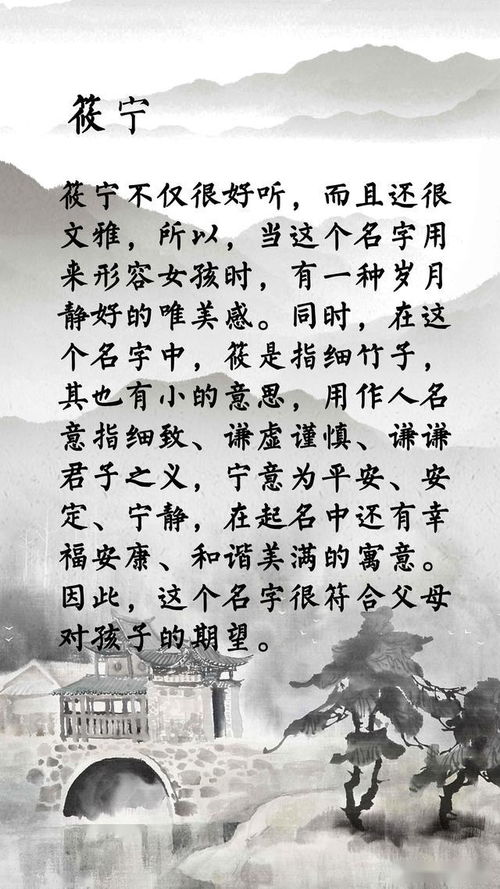 筱宁
筱宁不仅很好听，而且还很
文雅，所以，当这个名字用
来形容女孩时，有一种岁月
静好的唯美感。同时，在这
个名字中，筱是指细竹子，
其也有小的意思，用作人名
意指细致、谦虚谨慎、谦谦
君子之义，宁意为平安、安
定、宁静，在起名中还有幸
福安康、和谐美满的寓意。
因此，这个名字很符合父母
对孩子的期望。